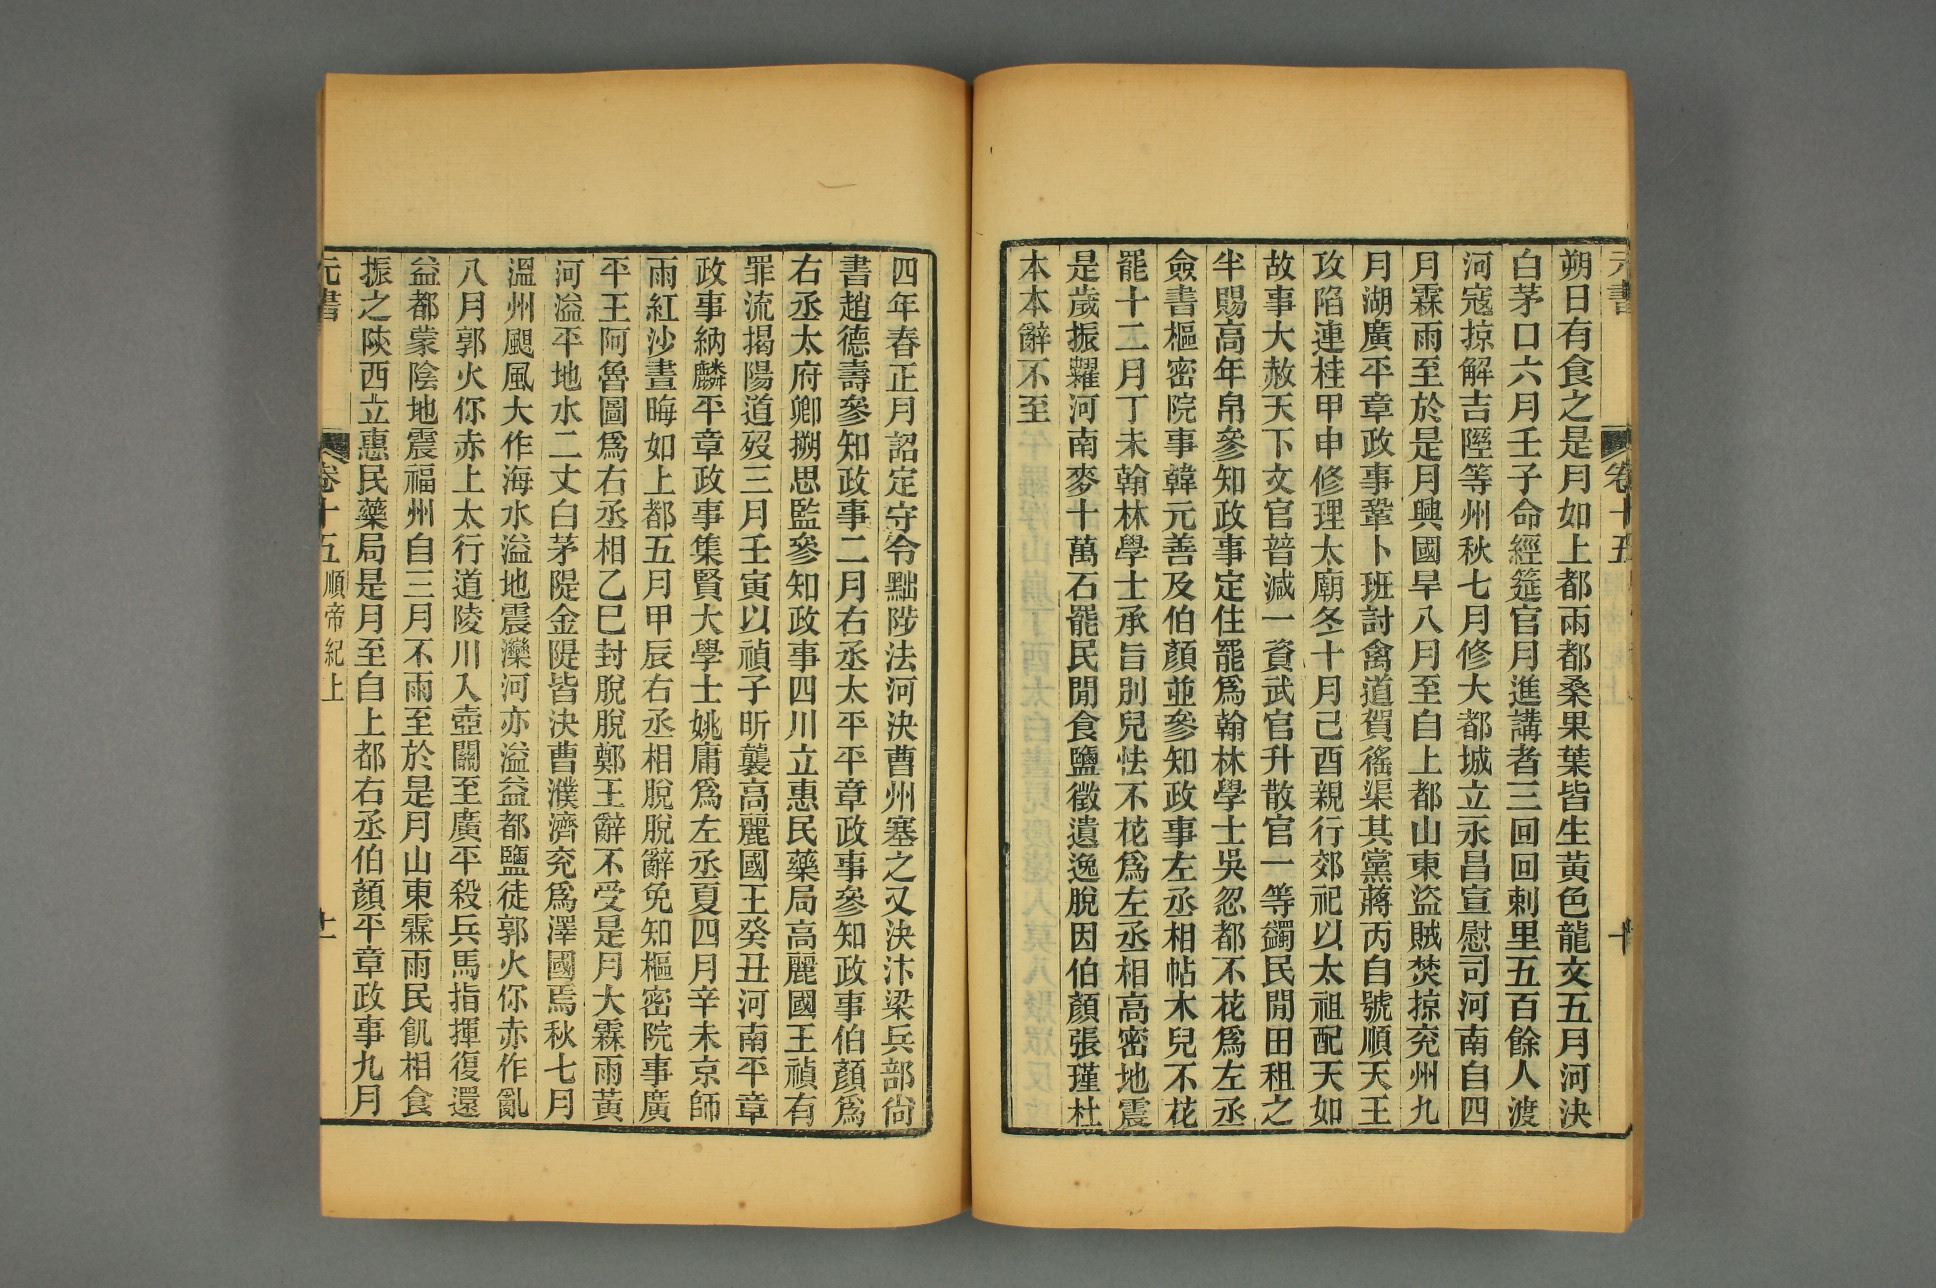 元書 卷十五 十
朔日有食之是月如上都兩都桑果葉皆生黃色龍文五月河決
白茅口六月壬子命經筵官月進講者三回回剌里五百餘人渡
河寇掠解吉隰等州秋七月修大都城立永昌宣慰司河南自四
月霖雨至於是月興國旱八月至自上都山東盜賊焚掠兖州九
月湖廣平章政事鞏卜班討禽道賀徭渠其黨蔣丙自號順天王
攻陷連桂甲申修理太廟冬十月己酉親行郊祀以太祖配天如
故事大赦天下文官普減一資武官升散官一等蠲民閒田租之
半賜高年帛參知政事定住罷爲翰林學士吳忽都不花爲左丞
僉書樞密院事韓元善及伯顏並參知政事左丞相帖木兒不花
罷十二月丁未翰林學士承旨別兒怯不花爲左丞相高密地震
是歲振糶河南麥十萬石罷民閒食鹽徵遺逸脫因伯顏張瑾杜
本本辭不至
四年春正月詔定守令黜陟法河決曹州塞之又決汴梁兵部尙
書趙德壽參知政事二月右丞太平平章政事參知政事伯顏爲
右丞太府卿搠思監參知政事四川立惠民藥局高麗國王禎有
罪流揭陽道歿三月壬寅以禎子昕襲高麗國王癸丑河南平章
政事納麟平章政事集賢大學士姚庸爲左丞夏四月辛未京師
雨紅沙晝晦如上都五月甲辰右丞相脫脫辭免知樞密院事廣
平王阿魯圖爲右丞相乙巳封脫脫鄭王辭不受是月大霖雨黃
河溢平地水二丈白茅隄金隄皆決曹濮濟兖爲澤國焉秋七月
溫州颶風大作海水溢地震灤河亦溢益都鹽徒郭火你赤作亂
八月郭火你赤上太行道陵川入壺關至廣平殺兵馬指揮復還
益都蒙陰地震福州自三月不雨至於是月山東霖雨民飢相食
振之陝西立惠民藥局是月至自上都右丞伯顏平章政事九月
元書 卷十五 順帝紀上 十一